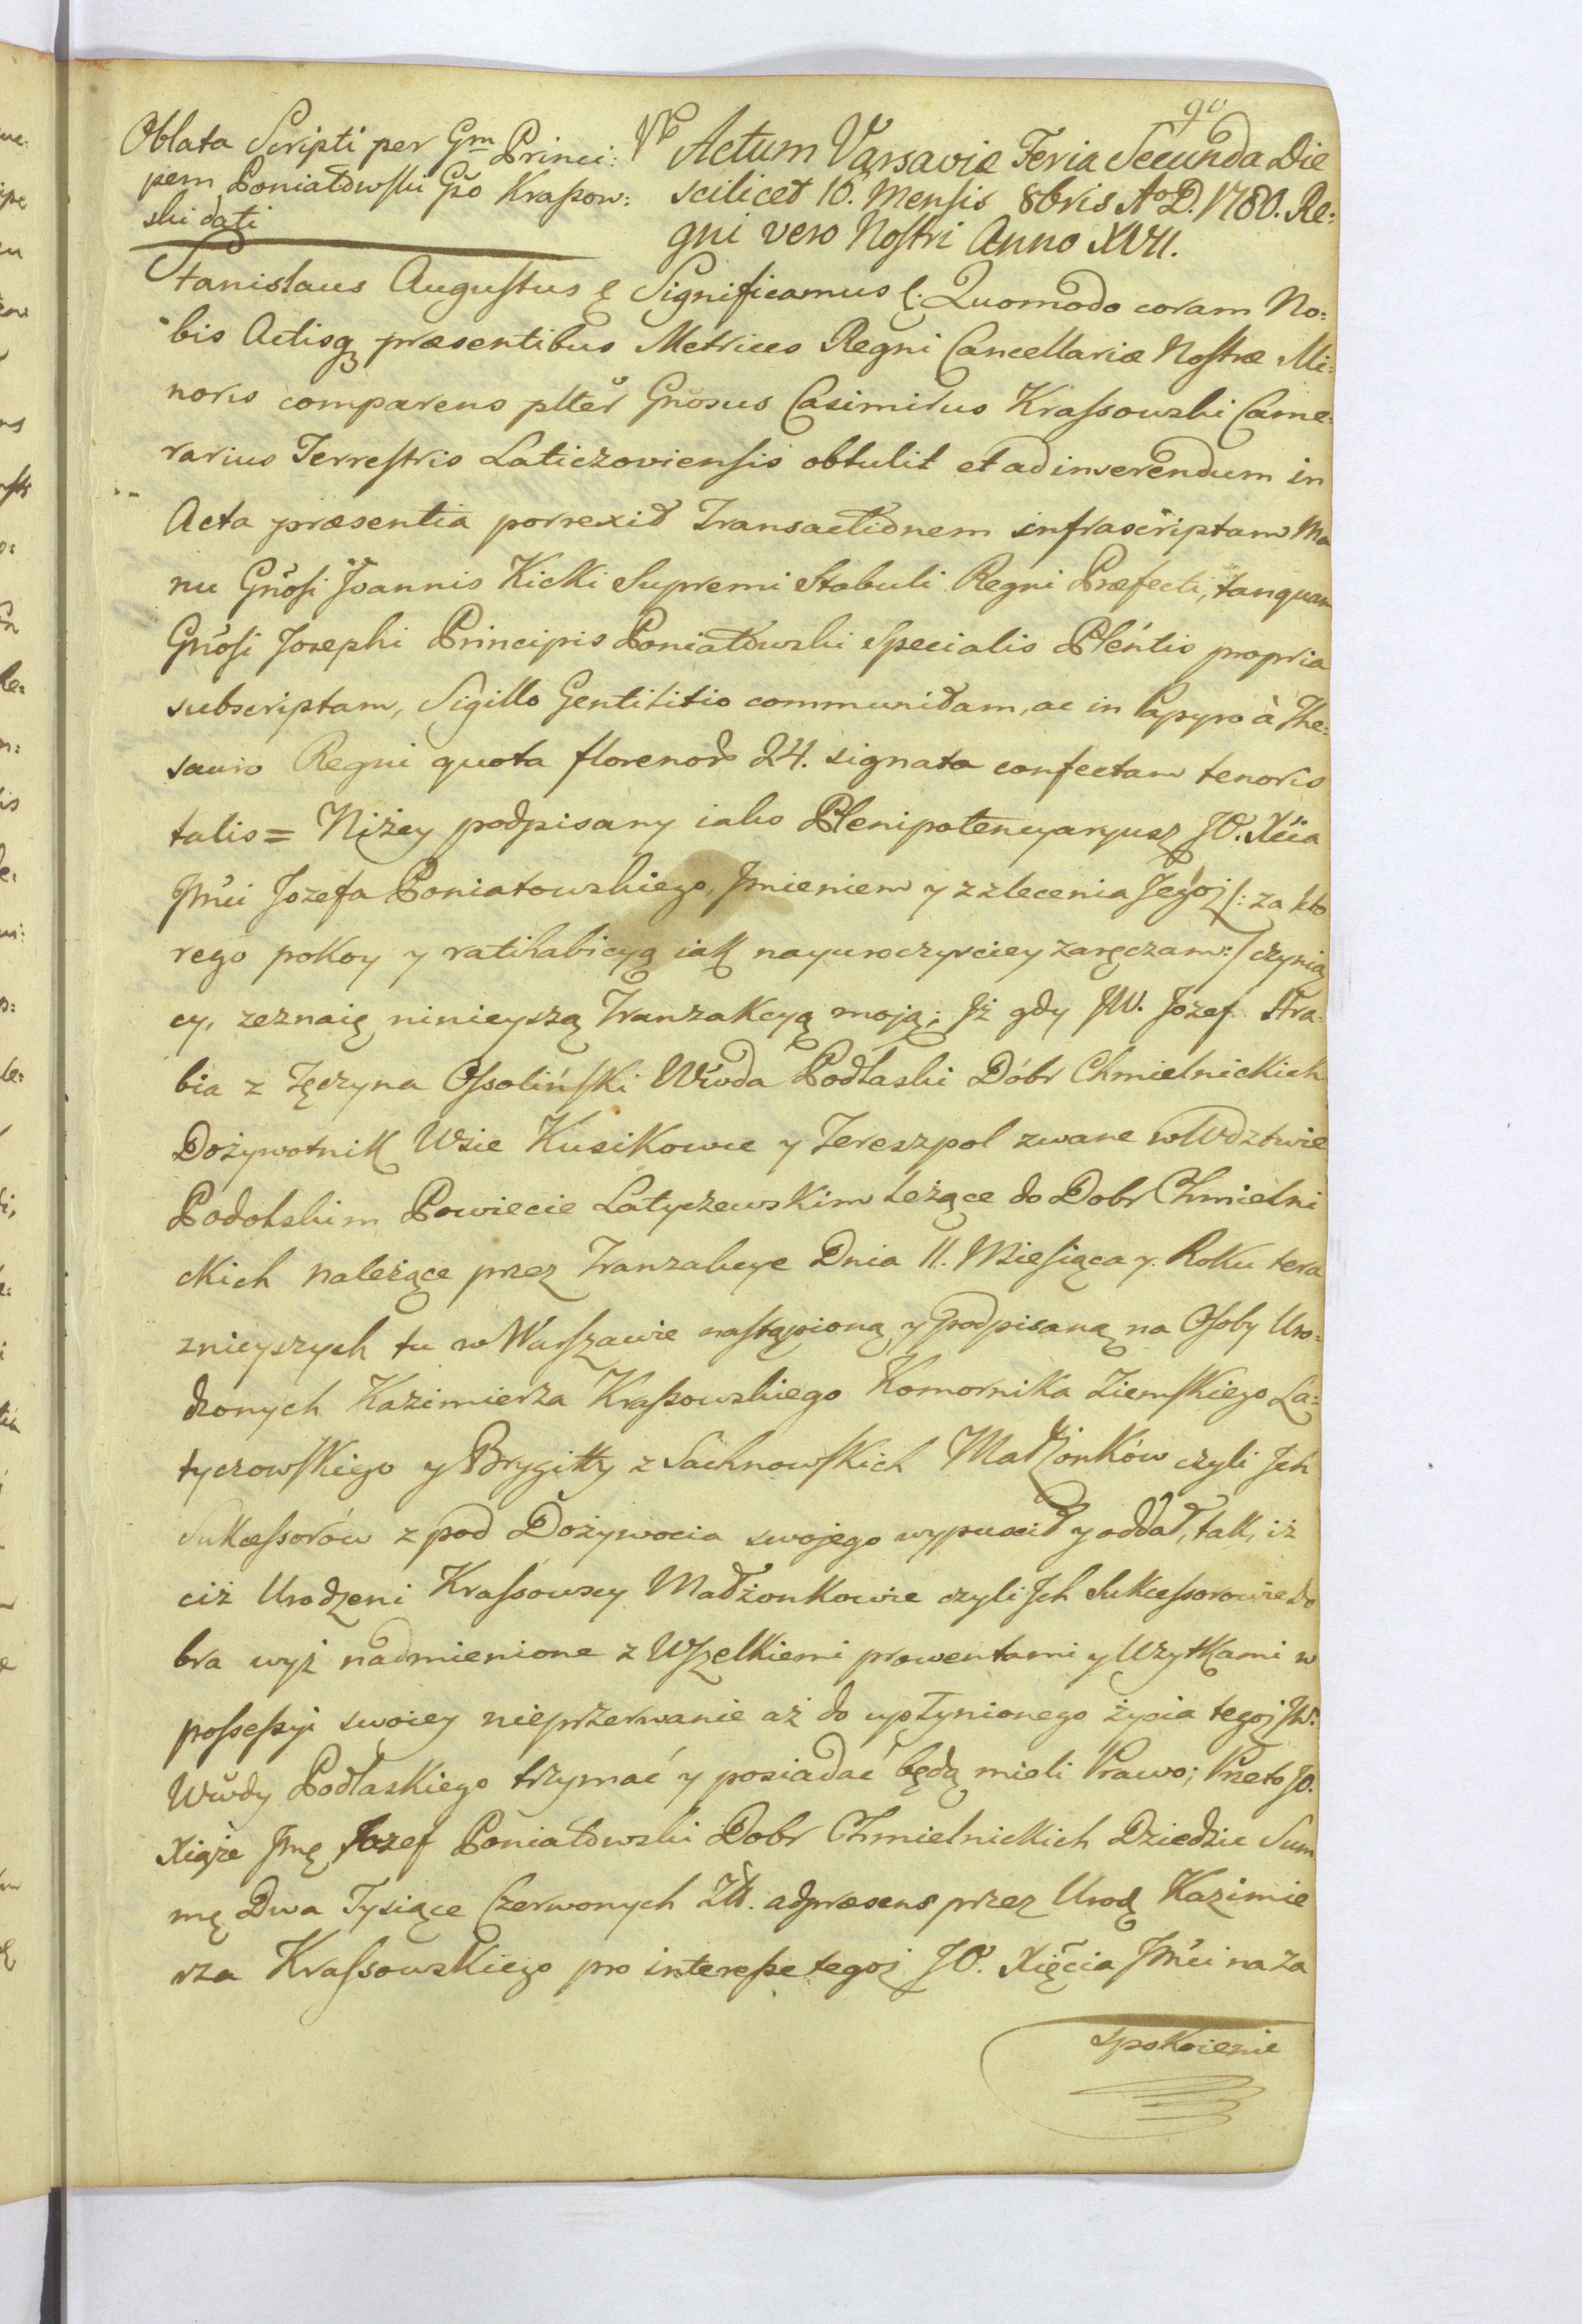 90
Oblata Scripti per Gm Princi:
pem Poniatowski Gso Krassow:
ski dati
Actum Varsaviæ Feria Secunda Die
scilicet 16. Mensis 8bris Ao D. 1780. Re:
gni vero Nostri Anno XVII.
Stanislaus Augustus & Significamus &. Quomodo coram No:
bis Actisq præsentibus Metrices Regni Cancellariæ Nostræ Mi:
noris comparens plter Gnosus Casimirus Krassowski Came:
rarius Terrestris Laticzoviensis obtulit et ad inserendum in
Acta præsentia porrexit Transactionem infrascriptam Ma
nu Gnosi Joannis Kicki Supremi Stabuli Regni Præfecti, tanquam
Gnosi Josephi Principis Poniatowski Specialis Plentis propria
subscriptam, Sigillo Gentilitio communitam, ac in Papyro à The:
sauro Regni quota florenor 24. signata confectam tenoris
talis = Niżey podpisany iako Plenipotencyaryusz JO. Xcia
Jmci Jozefa Poniatowskiego, Jmieniem y z zlecenia Jegoż /: za kto
rego pokoy y ratihabicyą iak nayuroczyściey zaręczam :/ czynią
cy, zeznaię ninieyszą Tranzakcyą moją; Jż gdy JW. Jozef Hra:
bia z Tęczyna Ossoliński Wwoda Podlaski Dóbr Chmielnickich
Dożywotnik Wsie Kusikowce y Tereszpol zwane w Wdztwie
Podolskim Powiecie Latyczewskim leżące do Dobr Chmielni
ckich należące przez Tranzakcye Dnia 11. Miesiąca y Roku tera
znieyszych tu w Warszawie nastąpioną y podpisaną na Osoby Uro:
dzonych Kazimierza Krassowskiego Komornika Ziemskiego La:
tyczowskiego y Brygitty z Sachnowskich Małżonków czyli Jch
Sukcessorów z pod Dożywocia swojego wypuscił y oddał, tak, iż
ciż Urodzeni Krassowscy Małżonkowie czyli Jch Sukcessorowie Do
bra wyż nadmienione z Wszelkiemi prowentami y Użytkami w
possessyi swoiey nieprzerwanie aż do upłynionego życia tegoż JW.
Wwdy Podlaskiego trzymać y posiadać będą mieli Prawo; Przeto JO.
Xiąże Jmę Jozef Poniatowski Dobr Chmielnickich Dziedzic Sum
mę Dwa Tysiące Czerwonych Złł. adpræsens przez Urodz Kazimie
rza Krassowskiego pro interesse tegoż JO. Xięcia Jmci na za
spokoienie